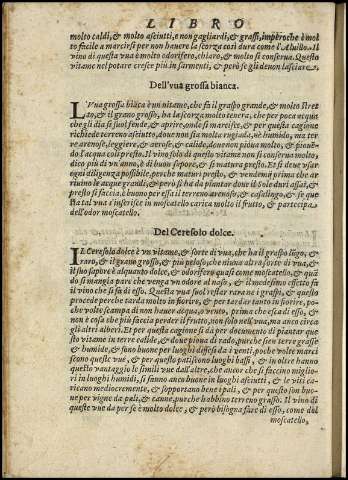 LIBRO
molto caldi, & molto asciutti, e non gagliardi, & grassi, imperoche è mol
to facile a marcirsi per non hauere la scorza così dura come l'Aluillo. Il
vino di questa vua è molto odorifero, chiaro, & molto si conserua. Questo
vitame nel potare cresce piu in sarmenti, & però se gli deuon lasciare.
Dell'vua grossa bianca.
L'Vua grossa biãca è un uitame, che fa il graspo grande, & molto stret
to, & il grano grosso, ha la scorza molto tenera, che per poca acqua
che gli dia si suol fende, & aprire, onde si marcisce, & per questa cagione
richiede terreno asciutto, doue non sia molta rugiada, nè humido, ma ter
re arenose, leggiere, & aerose, & calide, doue non pioua molto, & piouen
do l'acqua coli presto. Il vino solo di questo vitame non si conserua molto,
dico piu di tre anni, è di buon sapore, & si matura presto. Et si deue vsar
ogni diligenza possibile, perche maturi presto, & vendemiar prima che ar
riuino le acque grandi, & però si ha da piantar doue il Sole duri assai, &
presto si faccia buono per essa il terreno arenoso, & cascologo, & se que
sta tal vua s'inserisce in moscatello carica molto il frutto, & partecipa
dell'odor moscatello.
Del Ceresolo dolce.
IL Ceresolo dolce è vn vitame, & sorte di vua, che ha il graspo lũgo, &
raro, & il grano grosso, & piu peloso, che niuna altra sorte di vua, &
il suo sapore è alquanto dolce, & odorifero quasi come moscatello, & quã
do si mangia pare che venga vn odore al naso, & il medesimo effetto fa
il vino che si fa di essa. Questa vua suol restar rara ne i graspi, & questo
procede perche tarda molto in fiorire, & per tardar tanto in fiorire, po-
che volte scampa di non hauer acqua, o vento, prima che esca di esso, &
non è cosa che piu faccia perder il frutto, non solo nell'vua, ma anco circa
gli altri alberi. Et per questa cagione si dà per documento di piantar que
sto vitame in terre calide, & doue pioua di rado, purche sien terre grasse
& humide, & sono buone per luoghi difesi da i venti, poche volte marci
scono queste vue, & per questo patiscono i luoghi bassi, & in oltre hanno
questo vantaggio le simili vue dall'altre, che ancor che si faccino miglio-
ri in luoghi humidi, si fanno anco buone in luoghi asciutti, & le viti ca-
ricano mediocremente, & sopportano bene i pali, & per questo son buo-
ne per vigne da pali, & canne, purche habbino terreno grasso. Il vino di
queste vue da per se è molto dolce, & però bisogna fare di esso, come del
moscatello,